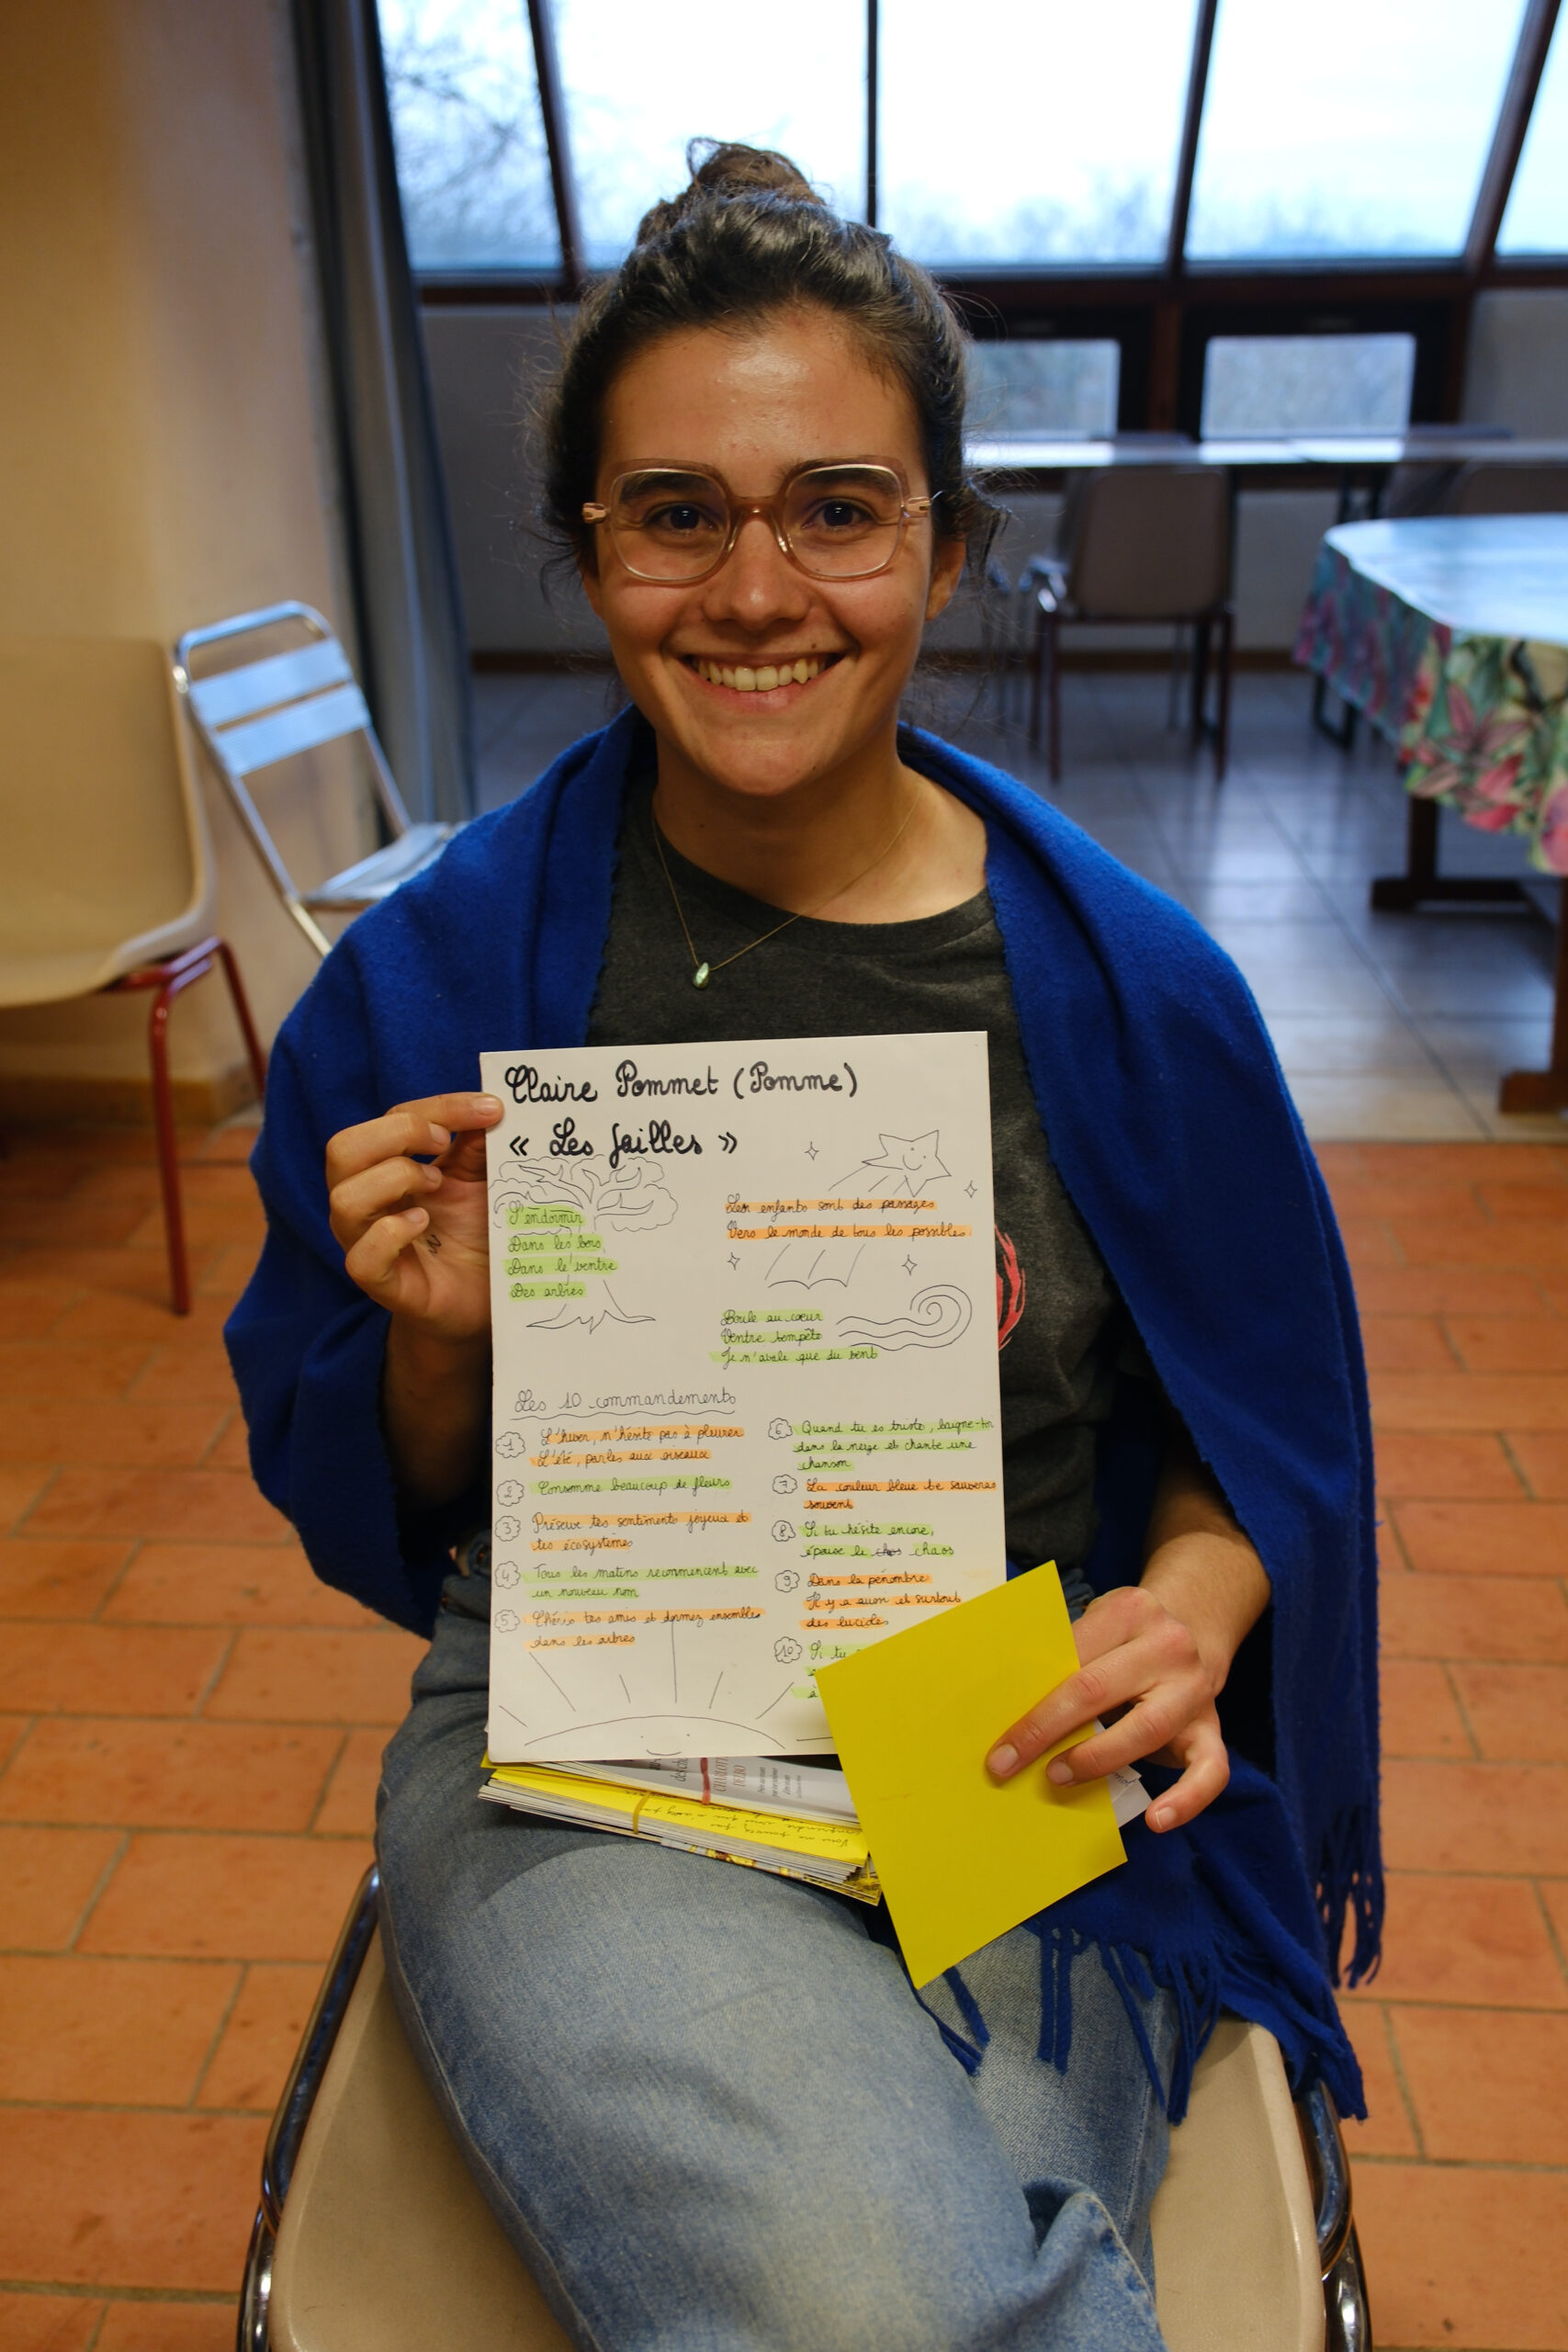 Claire Pommet (Pomme)
« Les failles »
J'endormir
Dans les bois
Dans le ventre
Des arbres
Les enfants sont des passages
Vers le monde de tous les possibles
Boule au cœur
Ventre tempête
Je n'avale que du vent
Les 10 commandements
1 L'hiver, n'hésite pas à pleurer
L'été, parles aux oiseaux
2 Consomme beaucoup de fleurs
3 Préserve tes sentiments joyeux et
tes écosystèmes
4 Tous les matins recommencent avec
un nouveau nom
5 Chéris tes amis et dormez ensembles
dans les arbres
6 Quand tu es triste, baigne-toi
dans la neige et chante une
chanson
7 La couleur bleue te sauvera
souvent
8 Si tu hésite encore,
épouse le chaos
9 Dans la pénombre
Il y a aussi et surtout
des lucioles
10 Si tu
à
CHARLOTTE
DELBO